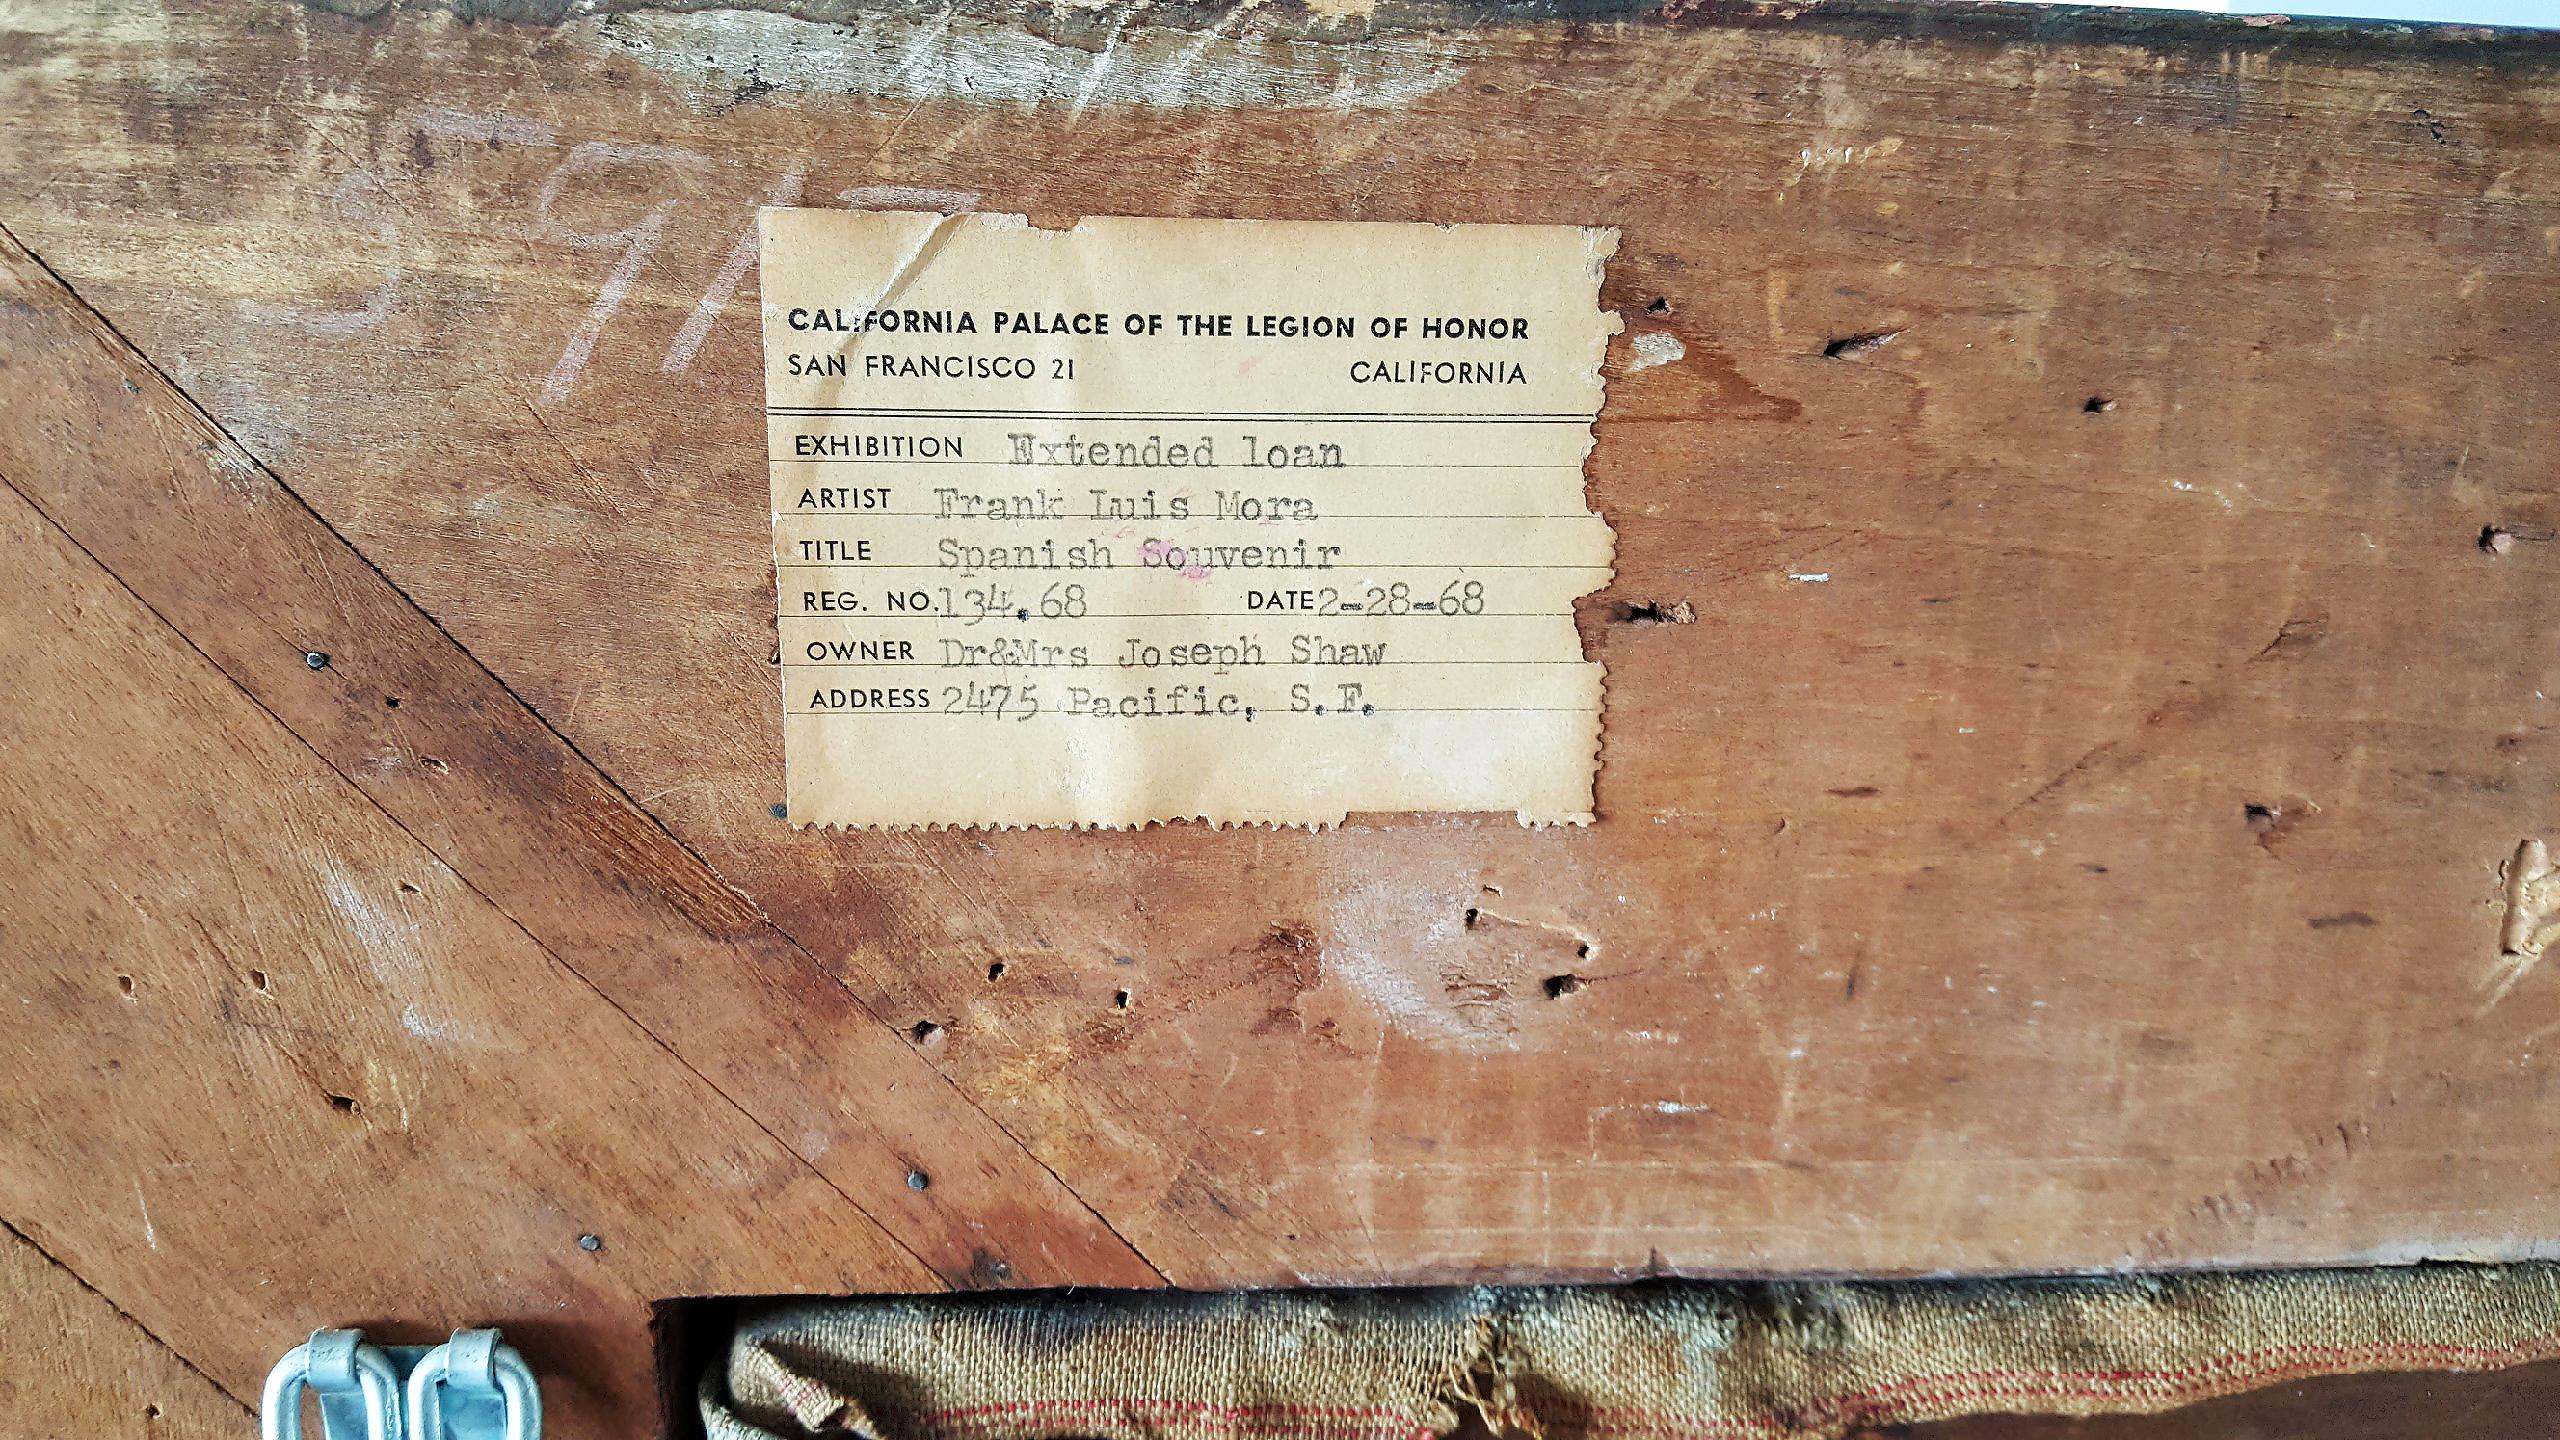 5917
CALIFORNIA PALACE OF THE LEGION OF HONOR
SAN FRANCISCO 21 CALIFORNIA
EXHIBITION Extended loan
ARTIST Frank Luis Mora
TITLE Spanish Souvenir
REG. NO. 134.68 DATE 2-28-68
OWNER Dr&Mrs Joseph Shaw
ADDRESS 2475 Pacific, S.F.